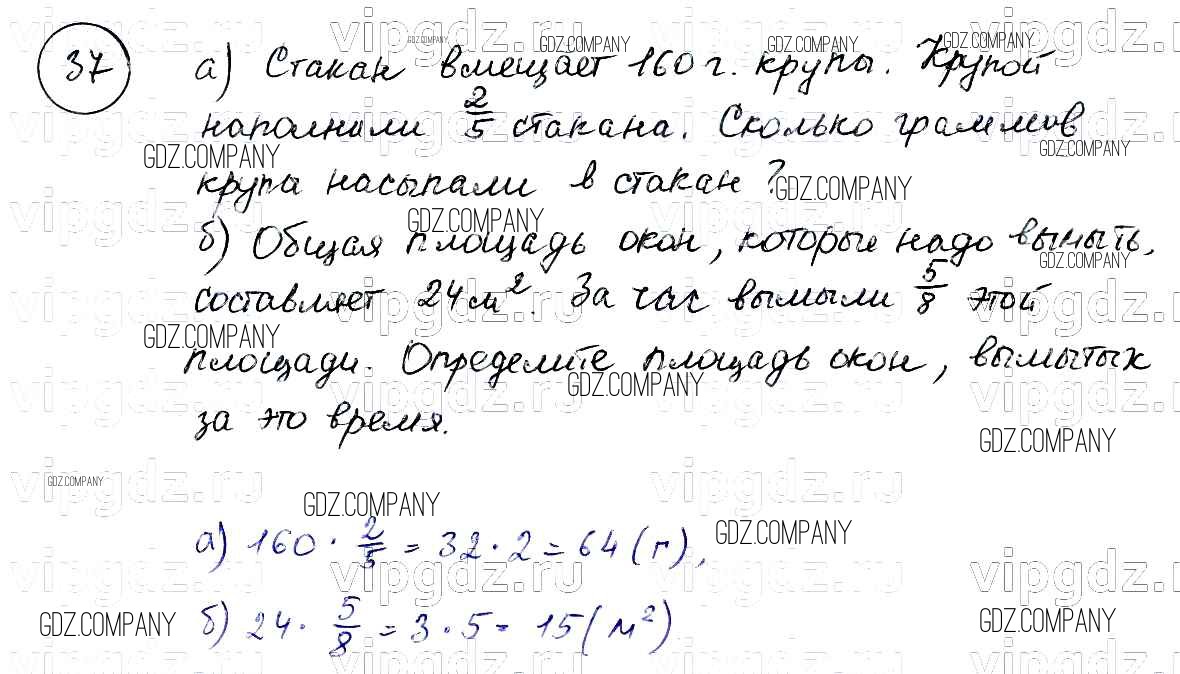 37
а) Стакан вмещает 160 г. крупы. Крупой
наполнили 2/5 стакана. Сколько граммов
крупа насыпали в стакан?
б) Общая площадь окон, которые надо вымыть,
составляет 24 м². За час вымыли 5/8 этой
площади. Определите площадь окон, вымытых
за это время.
а) 160 · 2/5 = 32 · 2 = 64 (г),
б) 24 · 5/8 = 3 · 5 = 15 (м²)
vipgdz.ru
GDZ.COMPANY